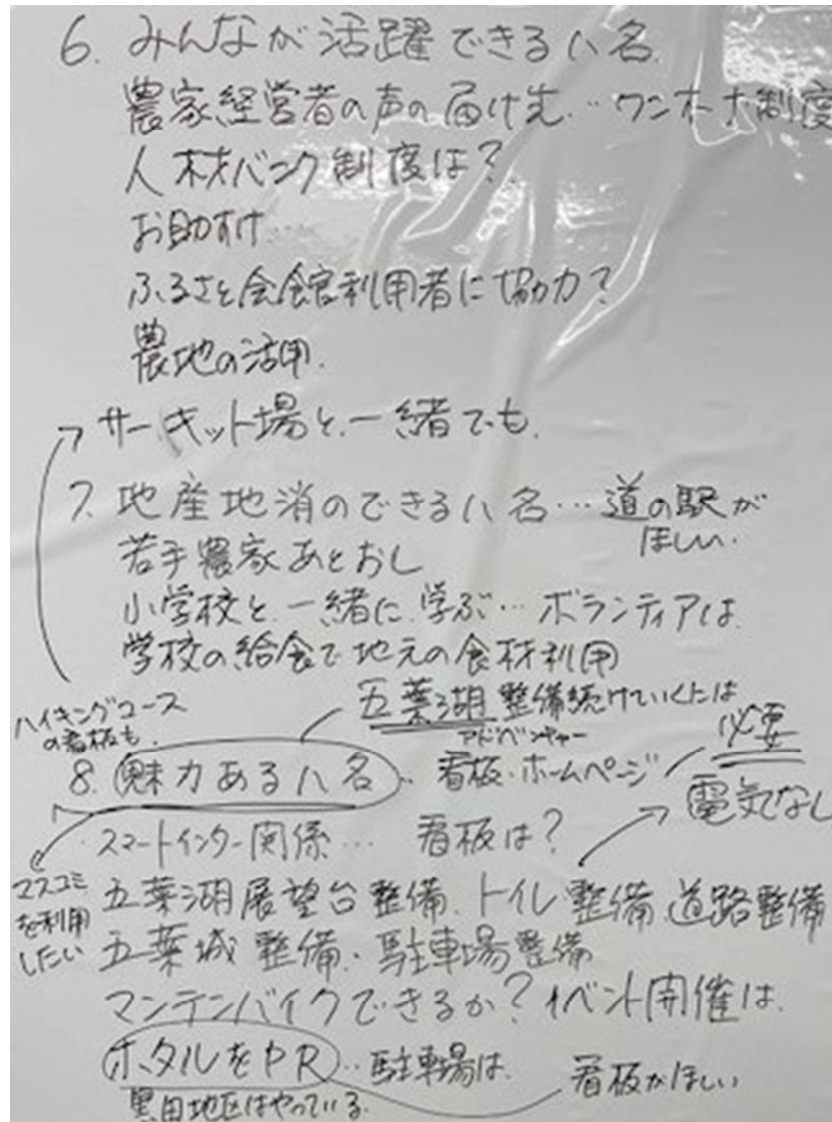 6. みんなが活躍できる八名
農家経営者の声の届け先…ワンオーナ制度
人材バンク制度は?
お助すけ
ふるさと会館利用者に協力?
農地の活用.
サーキット場と.一緒でも.
7. 地産地消のできる八名…道の駅が
ほしい.
若手農家あとおし
小学校と.一緒に.学ぶ…ボランティアは.
学校の給食で地元の食材利用
ハイキングコース
の看板も.
五葉湖整備続けていくには
アドベンチャー
必要
8. 魅力ある八名… 看板・ホームページ
電気なし
・スマートインター関係… 看板は?
マスコミ
を利用
したい
五葉湖展望台整備.トイレ整備.道路整備
五葉城整備・駐車場整備
マンテンバイクできるか?イベント開催は.
ホタルをPR…駐車場は.
看板がほしい
黒田地区はやっている.